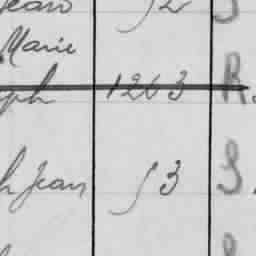 Jean 52 S
Marie
ph 1263 R.
h Jean 53 S.